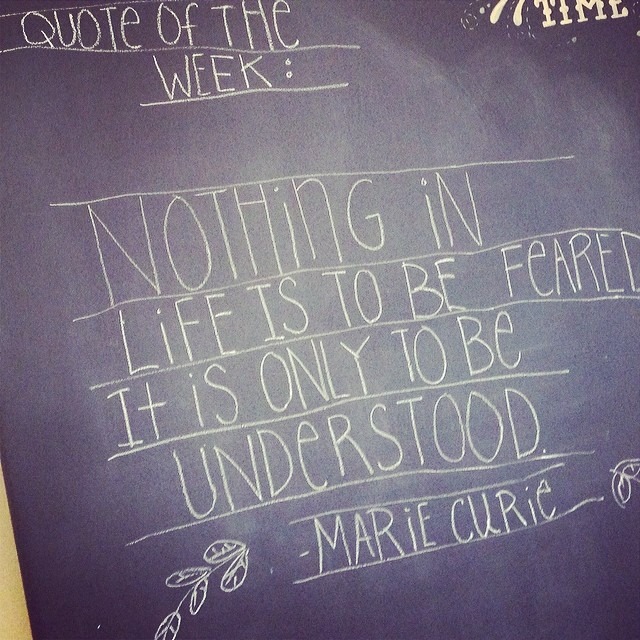 QUOTE OF THE
WEEK:
TIME
NOTHiNG iN
LiFE IS TO BE FeARED
It iS ONLY TO Be
UNDeRSTOOD.
-MARiE CURie